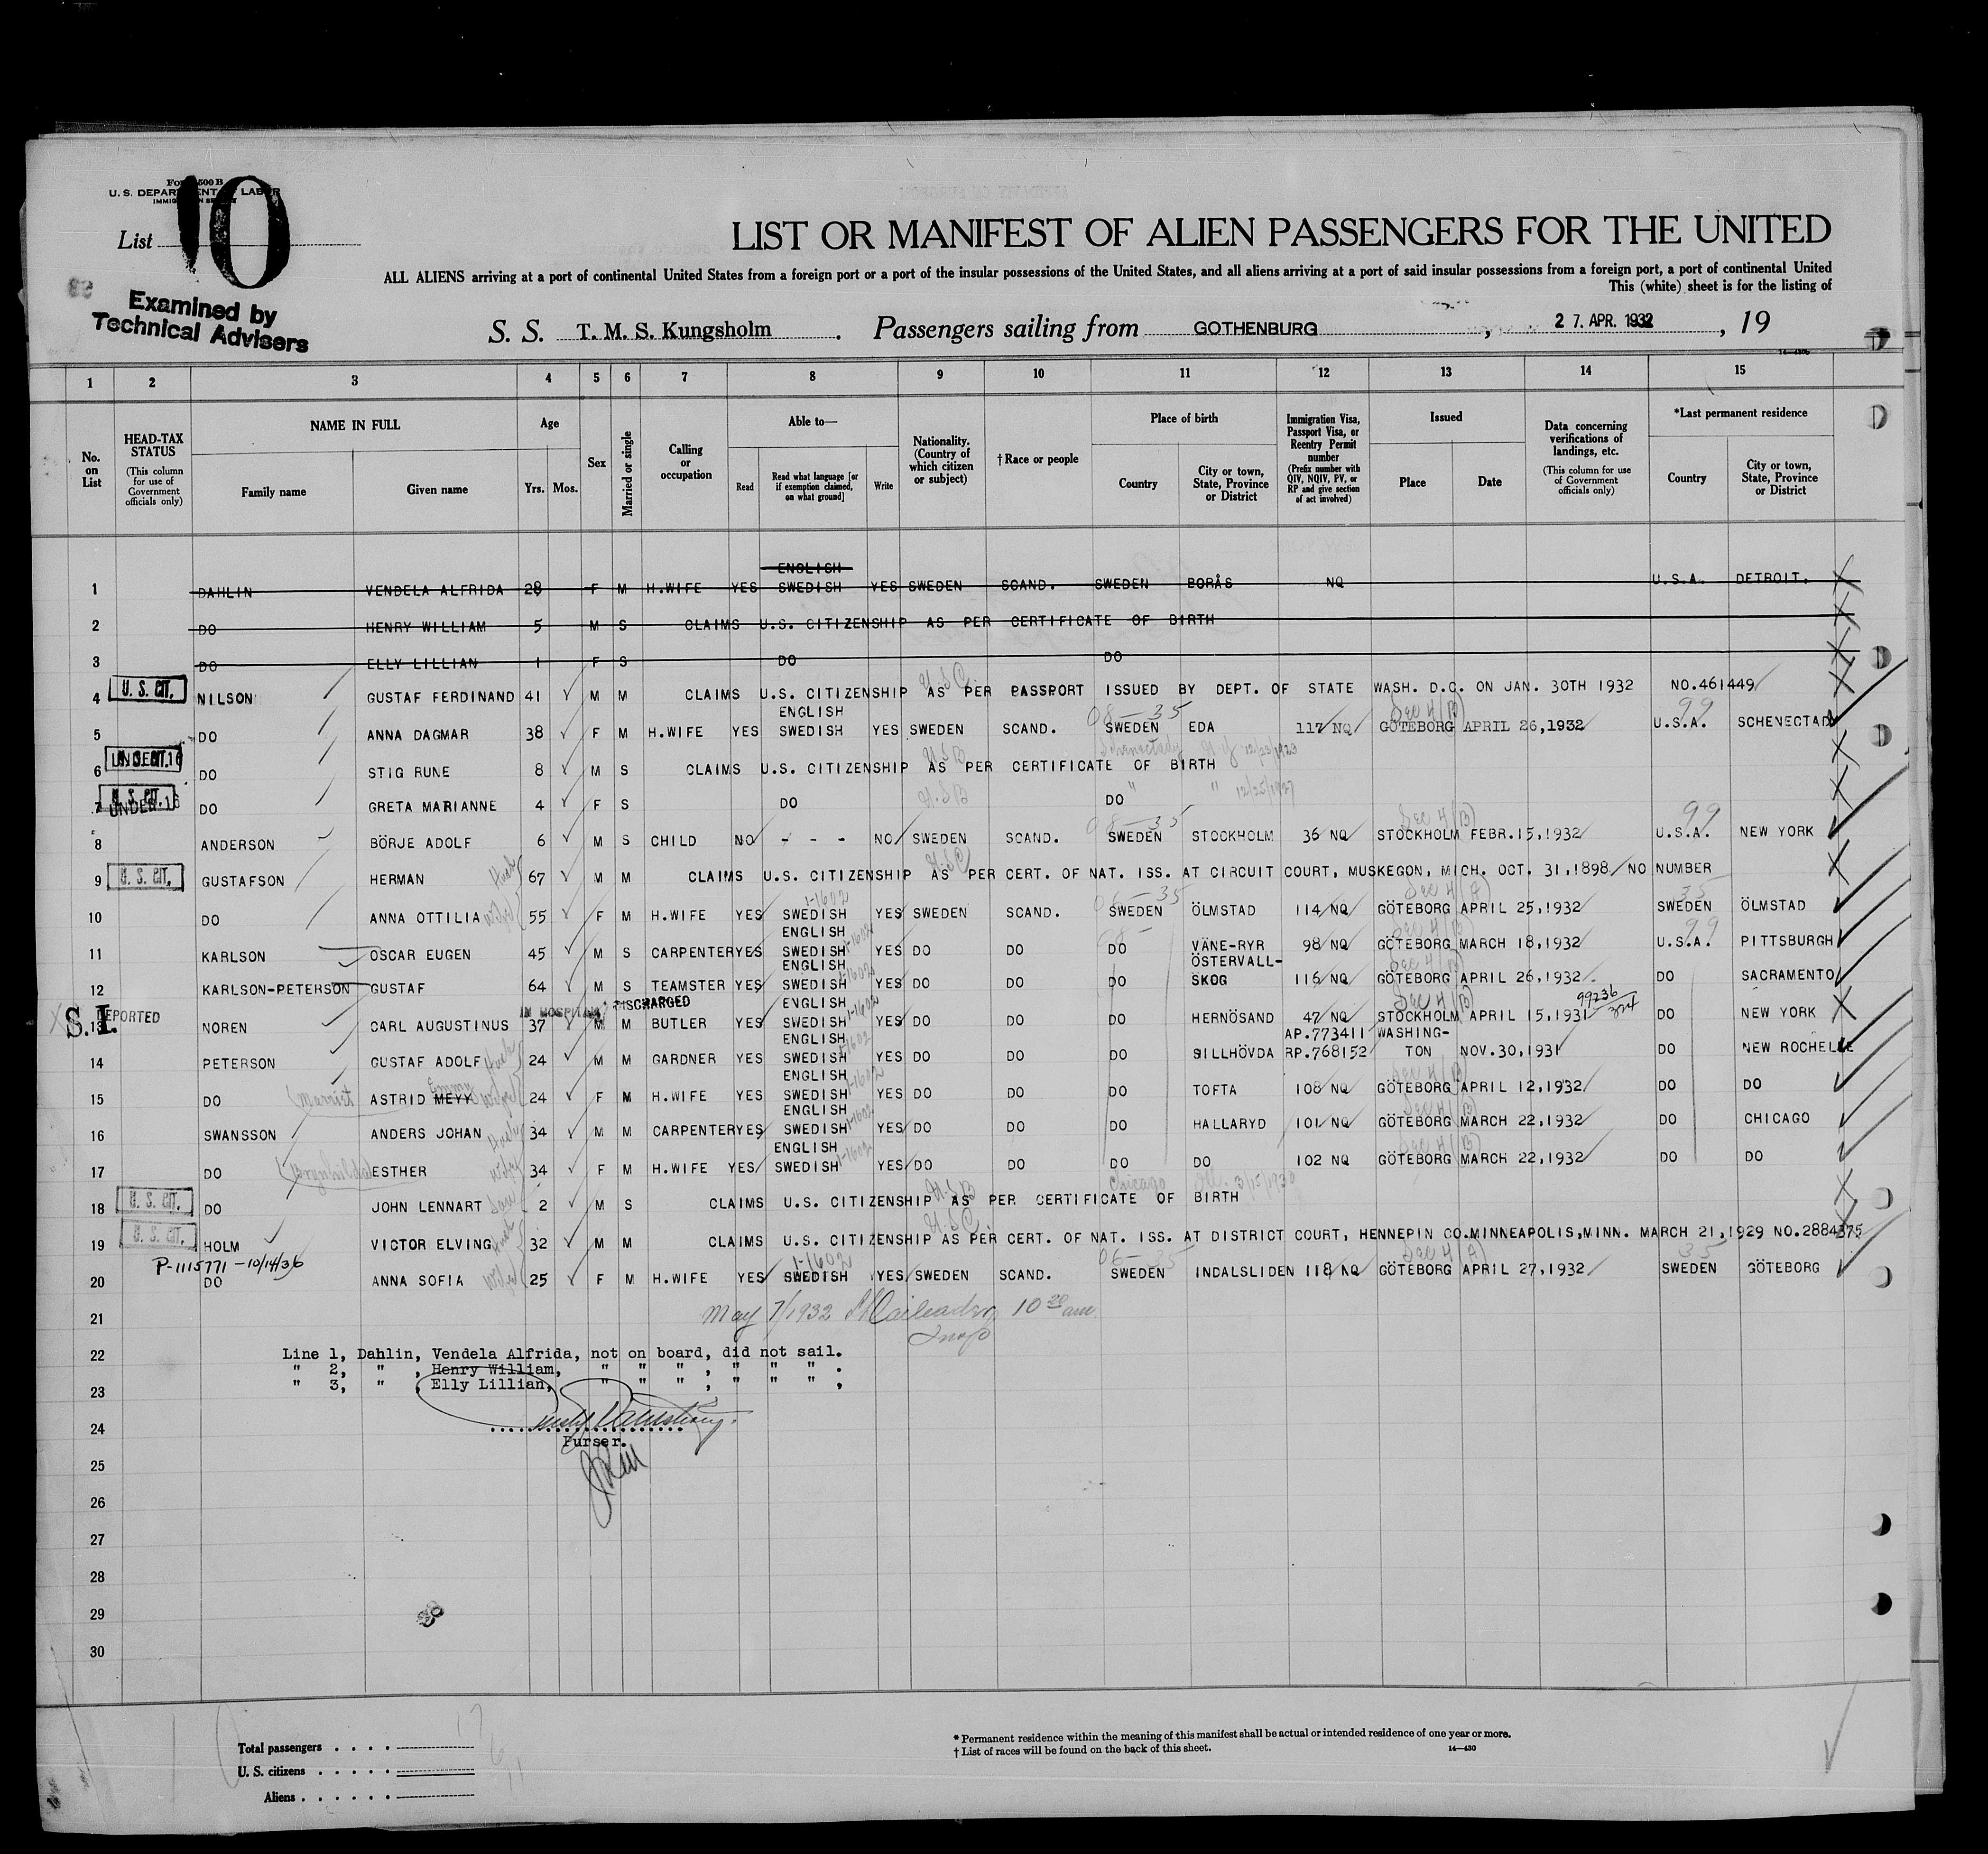 Form 500 B
U. S. DEPARTMENT OF LABOR
IMMIGRATION SERVICE
List 10
Examined by
Technical Advisers
LIST OR MANIFEST OF ALIEN PASSENGERS FOR THE UNITED
ALL ALIENS arriving at a port of continental United States from a foreign port or a port of the insular possessions of the United States, and all aliens arriving at a port of said insular possessions from a foreign port, a port of continental United
This (white) sheet is for the listing of
S. S. T. M. S. Kungsholm. Passengers sailing from GOTHENBURG, 27. APR. 1932, 19
14—430b
1 2 3 4 5 6 7 8 9 10 11 12 13 14 15
No. on List
HEAD-TAX STATUS (This column for use of Government officials only)
NAME IN FULL
Family name
Given name
Age
Yrs. Mos.
Sex
Married or single
Calling or occupation
Able to—
Read
Read what language [or if exemption claimed, on what ground]
Write
Nationality. (Country of which citizen or subject)
†Race or people
Place of birth
Country
City or town, State, Province or District
Immigration Visa, Passport Visa, or Reentry Permit number (Prefix number with QIV, NQIV, PV, or RP and give section of act involved)
Issued
Place
Date
Data concerning verifications of landings, etc. (This column for use of Government officials only)
*Last permanent residence
Country
City or town, State, Province or District
ENGLISH
1 DAHLIN VENDELA ALFRIDA 28 F M H.WIFE YES SWEDISH YES SWEDEN SCAND. SWEDEN BORÅS NQ U.S.A. DETROIT.
2 DO HENRY WILLIAM 5 M S CLAIMS U.S. CITIZENSHIP AS PER CERTIFICATE OF BIRTH
3 DO ELLY LILLIAN 1 F S DO DO
U.S.C.
4 U. S. CIT. NILSON GUSTAF FERDINAND 41 M M CLAIMS U.S. CITIZENSHIP AS PER PASSPORT ISSUED BY DEPT. OF STATE WASH. D.C. ON JAN. 30TH 1932 NO.461449
ENGLISH 08-35 Sec 4 (B) 99
5 DO ANNA DAGMAR 38 F M H.WIFE YES SWEDISH YES SWEDEN SCAND. SWEDEN EDA 117 NQ GÖTEBORG APRIL 26,1932 U.S.A. SCHENECTAD
U.S.B Schenectady N.Y 12/23/1923
6 DO STIG RUNE 8 M S CLAIMS U.S. CITIZENSHIP AS PER CERTIFICATE OF BIRTH
U.S.B " " 12/25/1927
7 U. S. CIT. UNDER 16 DO GRETA MARIANNE 4 F S DO DO
08-35 Sec 4 (B) 99
8 ANDERSON BÖRJE ADOLF 6 M S CHILD NO - - - NO SWEDEN SCAND. SWEDEN STOCKHOLM 36 NQ STOCKHOLM FEBR.15,1932 U.S.A. NEW YORK
U.S.C
9 U. S. CIT. GUSTAFSON HERMAN 67 M M CLAIMS U.S. CITIZENSHIP AS PER CERT. OF NAT. ISS. AT CIRCUIT COURT, MUSKEGON, MICH. OCT. 31,1898 NO NUMBER
1-1602 Sec 4 (A) 35
10 DO ANNA OTTILIA Wife 55 F M H.WIFE YES SWEDISH YES SWEDEN SCAND. SWEDEN ÖLMSTAD 114 NQ GÖTEBORG APRIL 25,1932 SWEDEN ÖLMSTAD
ENGLISH 1-1602 Sec 4 (B) 99
11 KARLSON OSCAR EUGEN 45 M S CARPENTER YES SWEDISH YES DO DO DO VÄNE-RYR 98 NQ GÖTEBORG MARCH 18,1932 U.S.A. PITTSBURGH
ENGLISH 1-1602 ÖSTERVALL- Sec 4 (B)
12 KARLSON-PETERSON GUSTAF 64 M S TEAMSTER YES SWEDISH YES DO DO DO SKOG 116 NQ GÖTEBORG APRIL 26,1932 DO SACRAMENTO
IN HOSPITAL DISCHARGED ENGLISH 1-1602 Sec 4 (B) 99236/324
13 S.I. DEPORTED NOREN CARL AUGUSTINUS 37 M M BUTLER YES SWEDISH YES DO DO DO HERNÖSAND 47 NQ STOCKHOLM APRIL 15,1931 DO NEW YORK
ENGLISH 1-1602 AP.773411 WASHING-
14 PETERSON GUSTAF ADOLF 24 M M GARDNER YES SWEDISH YES DO DO DO SILLHÖVDA RP.768152 TON NOV.30,1931 DO NEW ROCHELLE
Emmy ENGLISH 1-1602 Sec 4 (B)
15 DO ASTRID MEYY Wife 24 F M H.WIFE YES SWEDISH YES DO DO DO TOFTA 108 NQ GÖTEBORG APRIL 12,1932 DO DO
ENGLISH 1-1602 Sec 4 (B)
16 SWANSSON ANDERS JOHAN 34 M M CARPENTER YES SWEDISH YES DO DO DO HALLARYD 101 NQ GÖTEBORG MARCH 22,1932 DO CHICAGO
ENGLISH 1-1602 Sec 4 (B)
17 DO ESTHER Wife 34 F M H.WIFE YES SWEDISH YES DO DO DO DO 102 NQ GÖTEBORG MARCH 22,1932 DO DO
U.S.B Chicago Ill. 3/15/1930
18 U. S. CIT. DO JOHN LENNART Son 2 M S CLAIMS U.S. CITIZENSHIP AS PER CERTIFICATE OF BIRTH
U.S.C
19 U. S. CIT. HOLM VICTOR ELVING 32 M M CLAIMS U.S. CITIZENSHIP AS PER CERT. OF NAT. ISS. AT DISTRICT COURT, HENNEPIN CO.MINNEAPOLIS,MINN. MARCH 21,1929 NO.2884375
P-1115771-10/14/36 1-1602 06-35 Sec 4 (A) 35
20 DO ANNA SOFIA Wife 25 F M H.WIFE YES SWEDISH YES SWEDEN SCAND. SWEDEN INDALSLIDEN 118 NQ GÖTEBORG APRIL 27,1932 SWEDEN GÖTEBORG
21 May 7/1932 10 20 am
Insp
22 Line 1, Dahlin, Vendela Alfrida, not on board, did not sail.
" 2, " , Henry William, " " " , " " " .
23 " 3, " , Elly Lillian, " " " , " " " ,
24
Purser.
25
26
27
28
29
30
Total passengers . . . . 17
U. S. citizens . . . . . 6
Aliens . . . . . . 11
* Permanent residence within the meaning of this manifest shall be actual or intended residence of one year or more.
† List of races will be found on the back of this sheet.
14—430